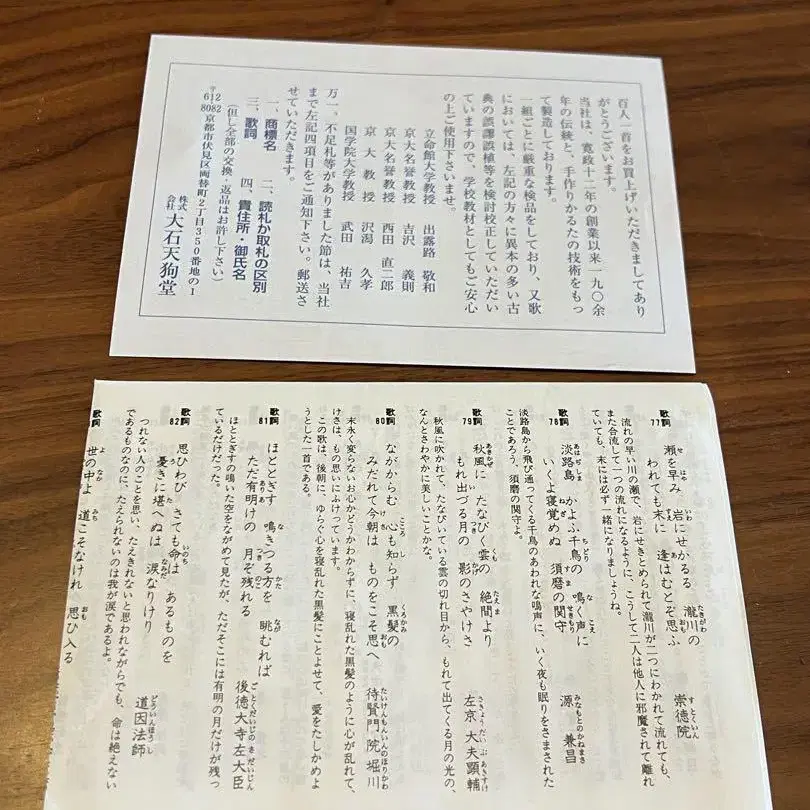 百人一首をお買上げいただきましてあり
がとうございます。
当社は、寛政十二年の創業以来一九〇余
年の伝統と、手作りかるたの技術をもっ
て製造しております。
一組ごとに厳重な検品をしており、又歌
においては、左記の方々に異本の多い古
典の誤謬誤植等を検討校正していただい
ていますので、学校教材としてもご安心
の上ご使用下さいませ。
立命館大学教授 出露路 敬和
京大名誉教授 吉沢 義則
京大名誉教授 西田 直二郎
京大教授 沢瀉 久孝
国学院大学教授 武田 祐吉
万一、不足札等がありました節は、当社
まで左記四項目をご通知下さい。郵送さ
せていただきます。
一、商標名 二、読札か取札の区別
三、歌詞 四、貴住所・御氏名
(但し全部の交換・返品はお許し下さい)
〒612-8082 京都市伏見区両替町2丁目350番地の1
株式会社 大石天狗堂
歌詞77
瀬を早み 岩にせかるる 瀧川の
われても末に 逢はむとぞ思ふ 崇徳院
流れの早い川の瀬で、岩にせきとめられて瀧川が二つにわかれて流れても、
また合流して一つの流れになるように、こうして二人は他人に邪魔されて離れ
ていても、末には必ず一緒になりましょうね。
歌詞78
淡路島 かよふ千鳥の 鳴く声に
いくよ寝覚めぬ 須磨の関守 源 兼昌
淡路島から飛び通ってくる千鳥のあわれな鳴声に、いく夜も眠りをさまされた
ことであろう、須磨の関守よ。
歌詞79
秋風に たなびく雲の 絶間より
もれ出づる月の 影のさやけさ 左京大夫顕輔
秋風に吹かれて、たなびいている雲の切れ目から、もれて出てくる月の光の、
なんとさわやかに美しいことかな。
歌詞80
ながからむ 心も知らず 黒髪の
みだれて今朝は ものをこそ思へ 待賢門院堀川
末永く変らないお心かどうかわからずに、寝乱れた黒髪のように心が乱れて、
けさは、もの思いにふけっています。
この歌は、後朝に、ゆらぐ心を寝乱れた黒髪にことよせて、愛をたしかめよ
うとした一首である。
歌詞81
ほととぎす 鳴きつる方を 眺むれば
ただ有明けの 月ぞ残れる 後徳大寺左大臣
ほととぎすの鳴いた空をながめて見たが、ただそこには有明の月だけが残っ
ているだけだった。
歌詞82
思ひわび さても命は あるものを
憂きに堪へぬは 涙なりけり 道因法師
つれない人のことを思い、たえきれないと思われながらでも、命は絶えない
であるものなのに、たえられないのは我が涙であるよ。
歌詞
世の中よ 道こそなけれ 思ひ入る